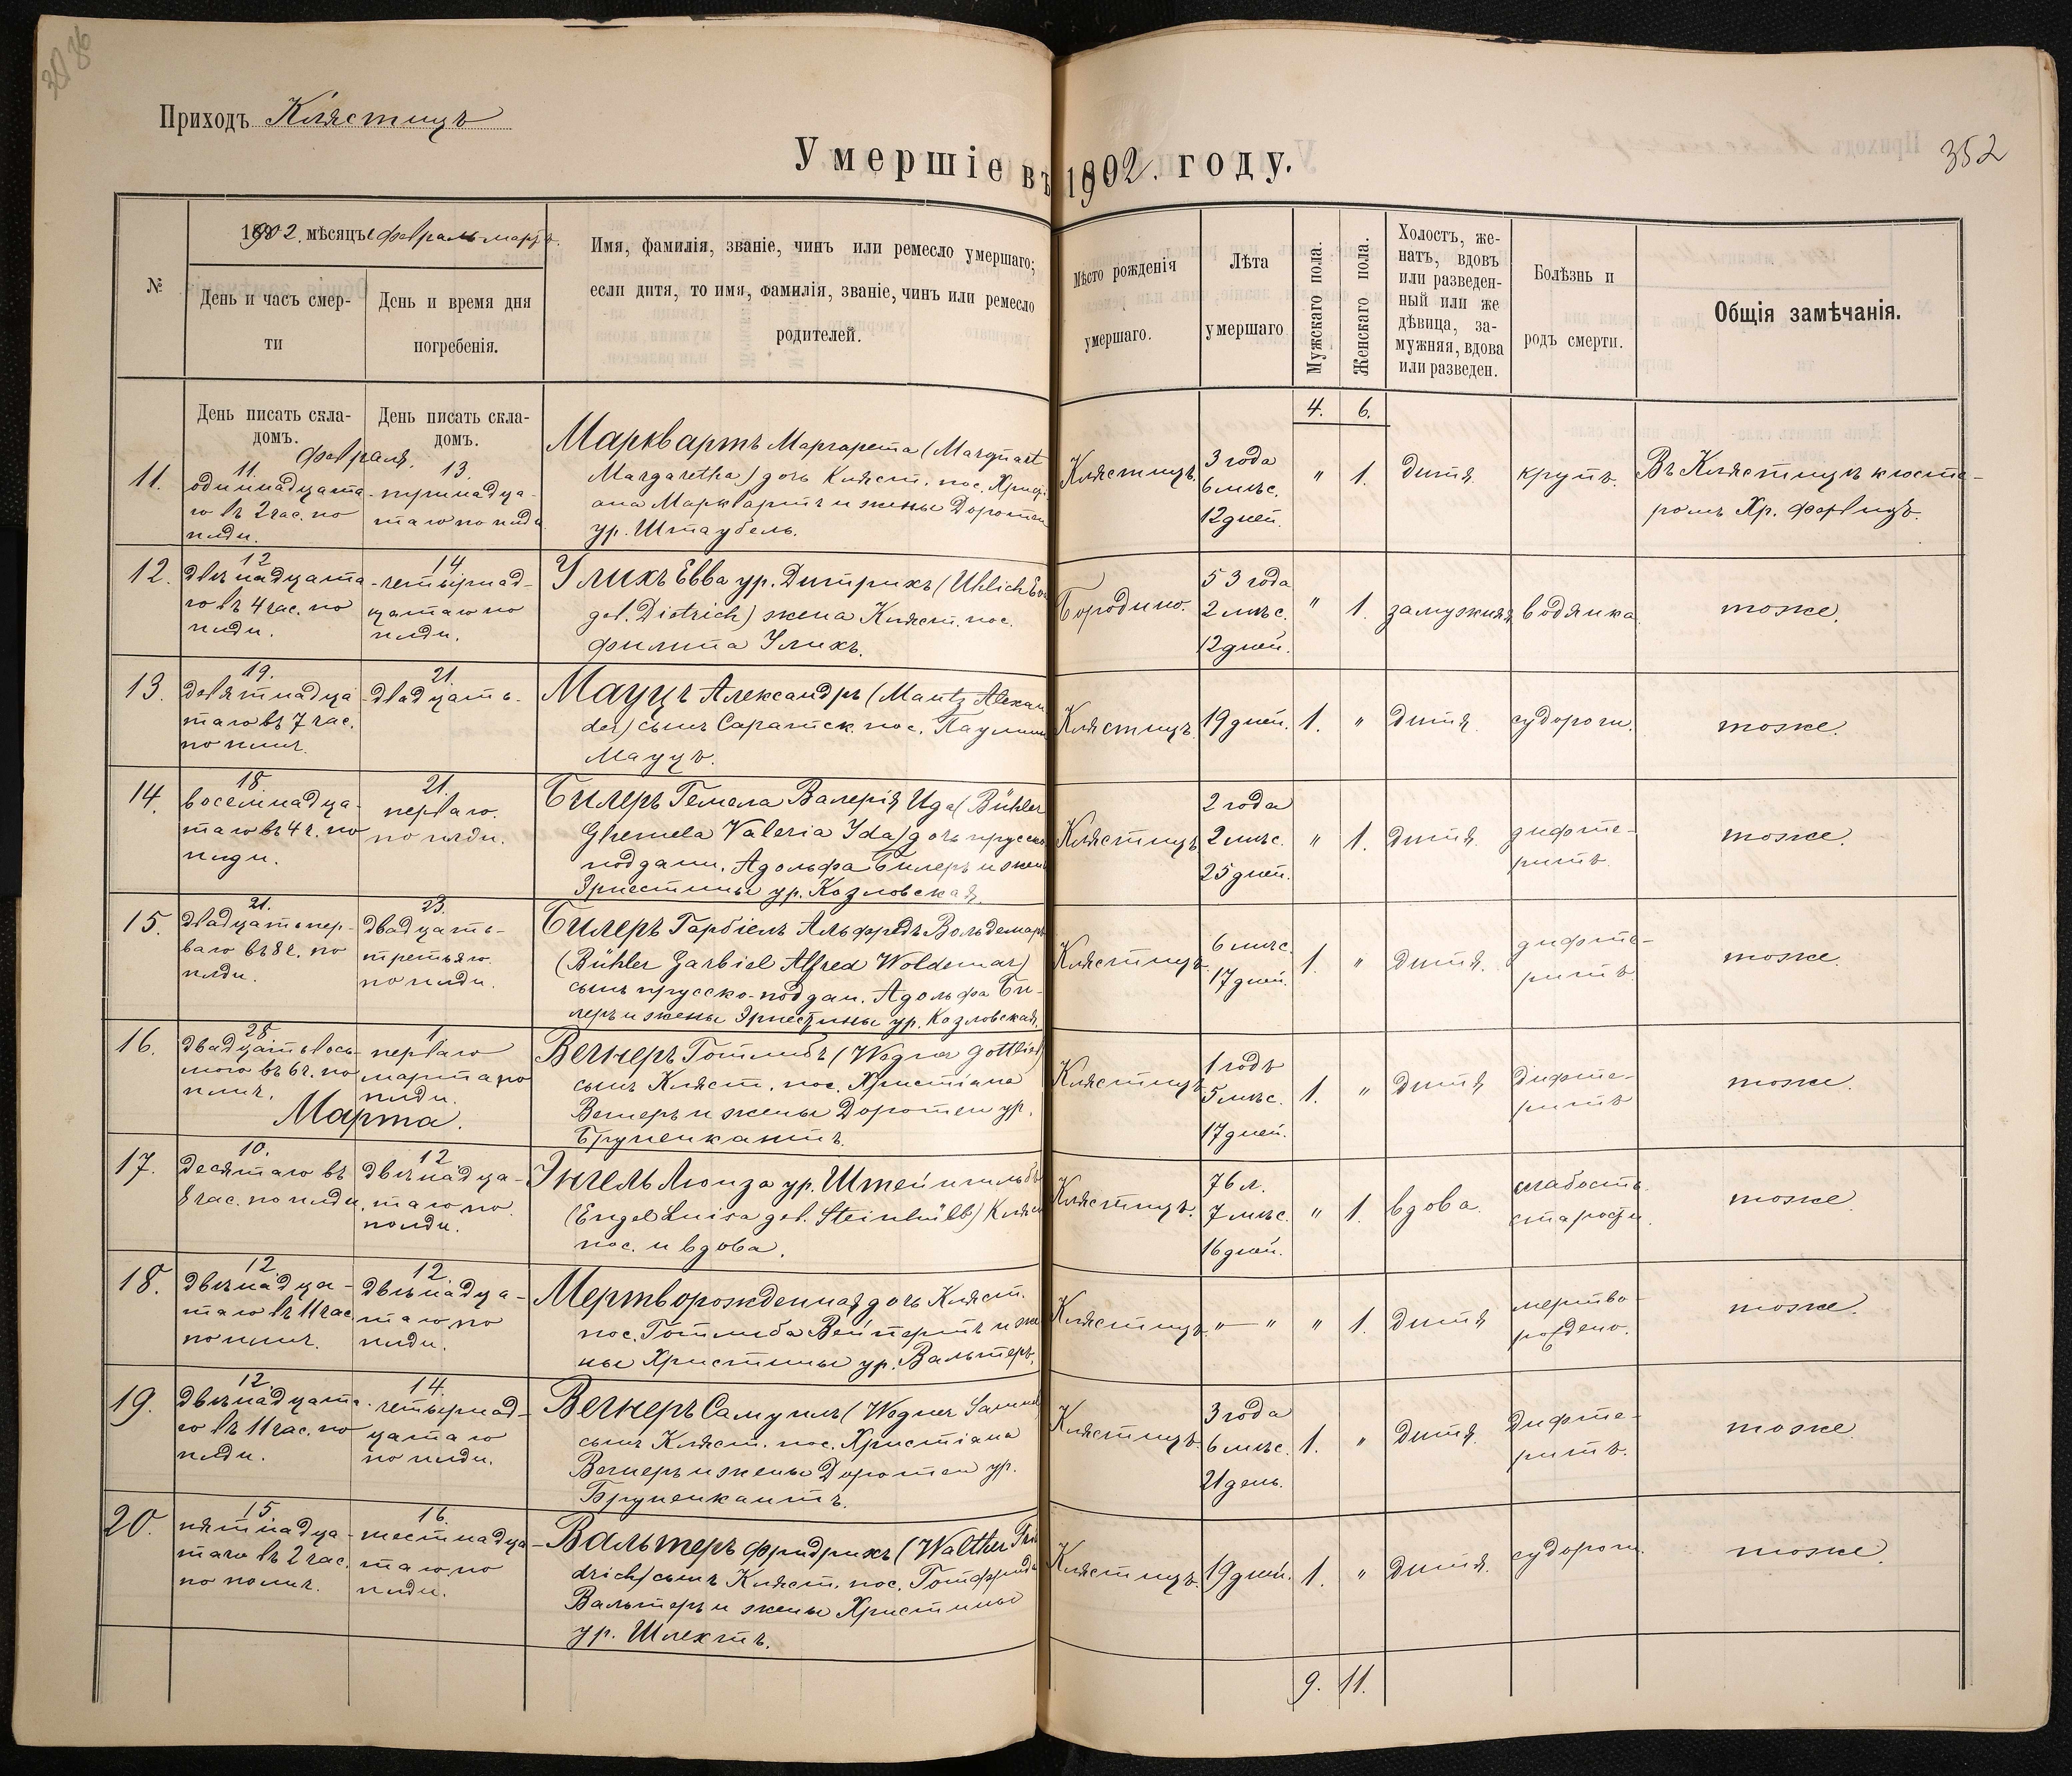 Приходъ Клястицъ
Умершіе въ 1902. году.
352
№
1902. мѣсяцъ февраль-мартъ.
День и часъ смер-
ти
День и время дня
погребенія.
Имя, фамилія, званіе, чинъ или ремесло умершаго;
если дитя, то имя, фамилія, званіе, чинъ или ремесло
родителей.
Мѣсто рожденія
умершаго.
Лѣта
умершаго
Мужскаго пола.
Женскаго пола.
Холостъ, же-
натъ, вдовъ
или разведен-
ный или же
дѣвица, за-
мужняя, вдова
или разведен.
Болѣзнь и
родъ смерти.
Общія замѣчанія.
День писать скла-
домъ.
День писать скла-
домъ.
4. 6.
Февраля.
11.
11.
одиннадцата-
го въ 2 час. по
плдн.
13.
тринадца-
таго по плдн
Марквартъ Маргарета (Marquart
Margaretha) дочь Кляст. пос. Христі
ана Марквартъ и жены Доротеи
ур. Штаубель.
Клястицъ.
3 года
6 мѣс.
12 дней.
" 1.
дитя.
крупъ.
Въ Клястицъ кюсте-
ромъ Хр.
12.
12
двѣнадцата
го въ 4 час. по
плдн.
14
четырнад-
цатаго по
плдн.
Улихъ Евва ур. Дитрихъ (Uhlich Eva
geb. Dietrich) жена Кляст. пос.
Филипа Улихъ.
Бородино.
53 года
2 мѣс.
12 дней.
" 1.
замужняя
водянка
тоже.
13.
19.
девятнадца
таго въ 7 час.
по плнч.
21.
двадцать-
Мауцъ Александръ (Mautz Alexan
der) сынъ Саратск. пос. Паулины
Мауцъ.
Клястицъ.
19 дней.
1. "
дитя
судороги.
тоже.
14.
18.
восемнадца-
таго въ 4 ч. по
плдн.
21.
перваго.
по плдн.
Билеръ Гемела Валерія Ида (Bühler
Ghemela Valeria Ida) дочь прусско
поддан. Адольфа Билеръ и жены
Эрнестины ур. Козловская.
Клястицъ
2 года
2 мѣс.
25 дней.
" 1.
дитя.
дифте-
ритъ.
тоже.
15.
21.
двадцать пер-
ваго въ 8 ч. по
плдн.
23.
двадцать-
третьяго.
по плдн.
Билеръ Гарбіелъ Альфредъ Вольдемаръ
(Bühler Garbiel Alfred Woldemar)
сынъ прусско-поддан. Адольфа Би-
леръ и жены Эрнестины ур. Козловская.
Клястицъ.
6 мѣс.
17 дней.
1. "
дитя.
дифте-
ритъ
тоже.
16.
28
двадцать вось-
мого въ 6 ч. по
плнч.
1
перваго
марта по
плдн.
Вегнеръ Готлибъ (Wegner Gottlieb)
сынъ Кляст. пос. Христіана
Вегнеръ и жены Доротеи ур.
Бруненкантъ.
Клястицъ
1 годъ
5 мѣс.
17 дней.
1. "
дитя
Дифте-
ритъ
тоже.
Марта.
17.
10.
десятаго въ
8 час. по плдн
12
двѣнадца-
таго по.
полдн.
Энгель Люиза ур. Штейнгильбъ
(Engel Luisa geb. Steinhülb) Кляст
пос. и вдова.
Клястицъ.
76 л.
7 мѣс.
16 дней.
" 1.
вдова.
слабость
старости.
тоже.
18.
12
двѣнадца-
таго въ 11 час
по плнч.
12.
двѣнадца-
таго по
плдн.
Мертворожденная дочь Кляст.
пос. Готлиба Вейнертъ и же
ны Христины ур. Вальтеръ.
Клястицъ.
" — "
" 1.
дитя
мертво-
рождено.
тоже.
19.
12
двѣнадцата
го въ 11 час. по
плдн.
14.
четырнад-
цатаго
по плдн.
Вегнеръ Самуилъ (Wegner Samuel
сынъ Кляст. пос. Христіана
Вегнеръ и жены Доротеи ур.
Бруненкантъ.
Клястицъ.
3 года
6 мѣс.
21 день.
1. "
дитя.
Дифте-
ритъ.
тоже.
20.
15.
пятнадца-
таго въ 2 час.
по полнч.
16.
шестнадца
таго по
плдн.
Вальтеръ Фридрихъ (Walther Frie
drich) сынъ Кляст. пос. Готфрида
Вальтеръ и жены Христины
ур. Шлехтъ.
Клястицъ.
19 дней.
1. "
дитя.
судороги.
тоже.
9. 11.